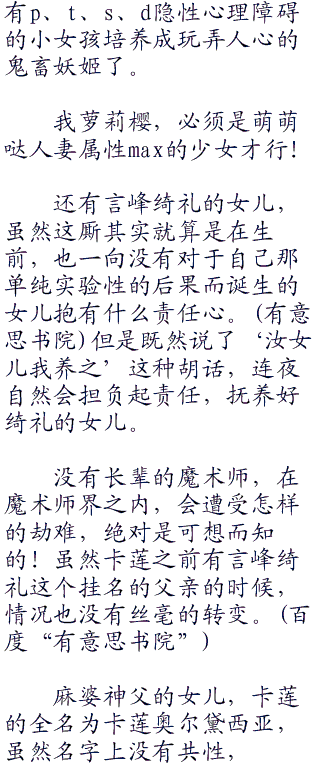 有p、t、s、d隐性心理障碍
的小女孩培养成玩弄人心的
鬼畜妖姬了。
我萝莉樱，必须是萌萌
哒人妻属性max的少女才行!
还有言峰绮礼的女儿，
虽然这厮其实就算是在生
前，也一向没有对于自己那
单纯实验性的后果而诞生的
女儿抱有什么责任心。(有意
思书院)但是既然说了‘汝女
儿我养之’这种胡话，连夜
自然会担负起责任，抚养好
绮礼的女儿。
没有长辈的魔术师，在
魔术师界之内，会遭受怎样
的劫难，绝对是可想而知
的！虽然卡莲之前有言峰绮
礼这个挂名的父亲的时候，
情况也没有丝毫的转变。(百
度“有意思书院”)
麻婆神父的女儿，卡莲
的全名为卡莲奥尔黛西亚，
虽然名字上没有共性，